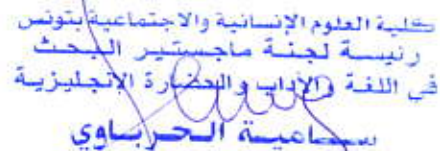 كلية العلوم الإنسانية والاجتماعية بتونس
رئيسة لجنة ماجستير البحث
في اللغة والآداب والحضارة الانجليزية
سامية الحرباوي